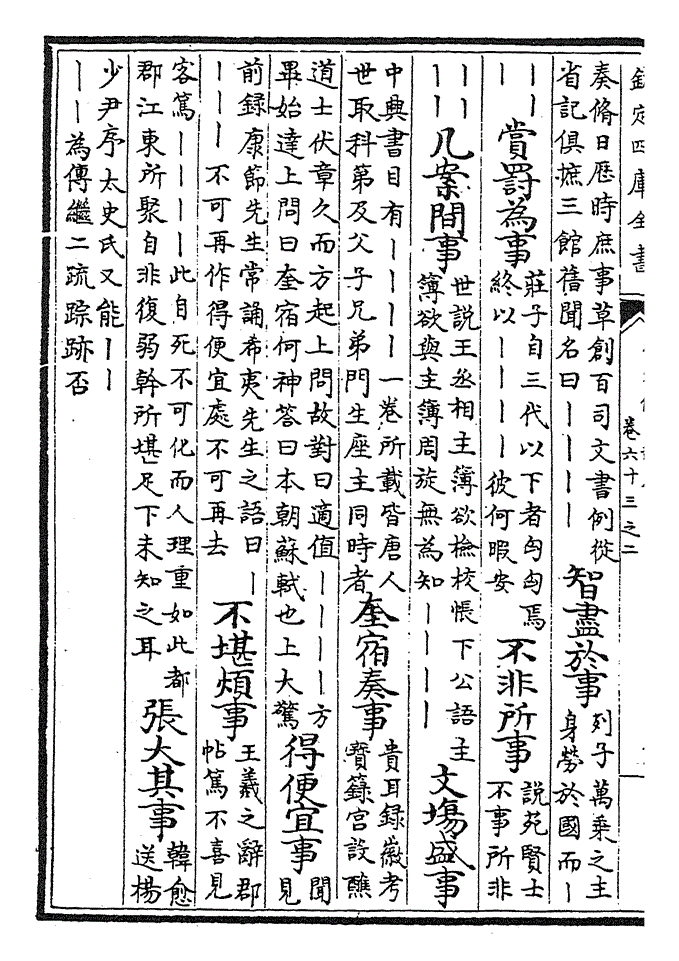 欽定四庫全書
卷六十三之二
奏脩日厯時庶事草創百司文書例從
省記俱摭三館舊聞名曰丨丨丨丨
智盡於事
列子萬乘之主
身勞於國而丨
丨丨
丨
賞罰為事
莊子自三代以下者匈匈焉
終以丨丨丨丨彼何暇安
不非所事
說苑賢士
不事所非
丨丨
丨丨
几案間事
世說王丞相主簿欲檢校帳下公語主
簿欲與主簿周旋無為知丨丨丨丨
文塲盛事
中興書目有丨丨丨丨一卷所載皆唐人
世取科第及父子兄弟門生座主同時者
奎宿奏事
貴耳錄徽考
寶籙宫設醮
道士伏章久而方起上問故對曰適值丨丨丨丨方
畢始達上問曰奎宿何神答曰本朝蘇軾也上大驚
得便宜事
聞
見
前録康節先生常誦希夷先生之語曰丨
丨丨丨不可再作得便宜處不可再去
不堪煩事
王羲之辭郡
帖篤不喜見
客篤丨丨丨丨此自死不可化而人理重如此都
郡江東所聚自非復弱幹所堪足下未知之耳
張大其事
韓愈
送楊
少尹序太史氏又能丨丨
丨丨為傳繼二疏踪跡否